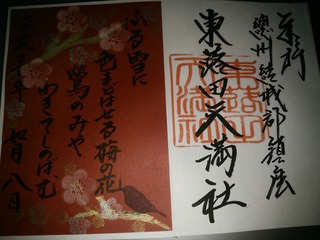 奉拝
總州結城郡鎮座
東蕗田天満社
東蕗田天満社
ふる雪に
色まどはせる梅の花
鶯のみや
わきてしのばむ
年 如月 八日